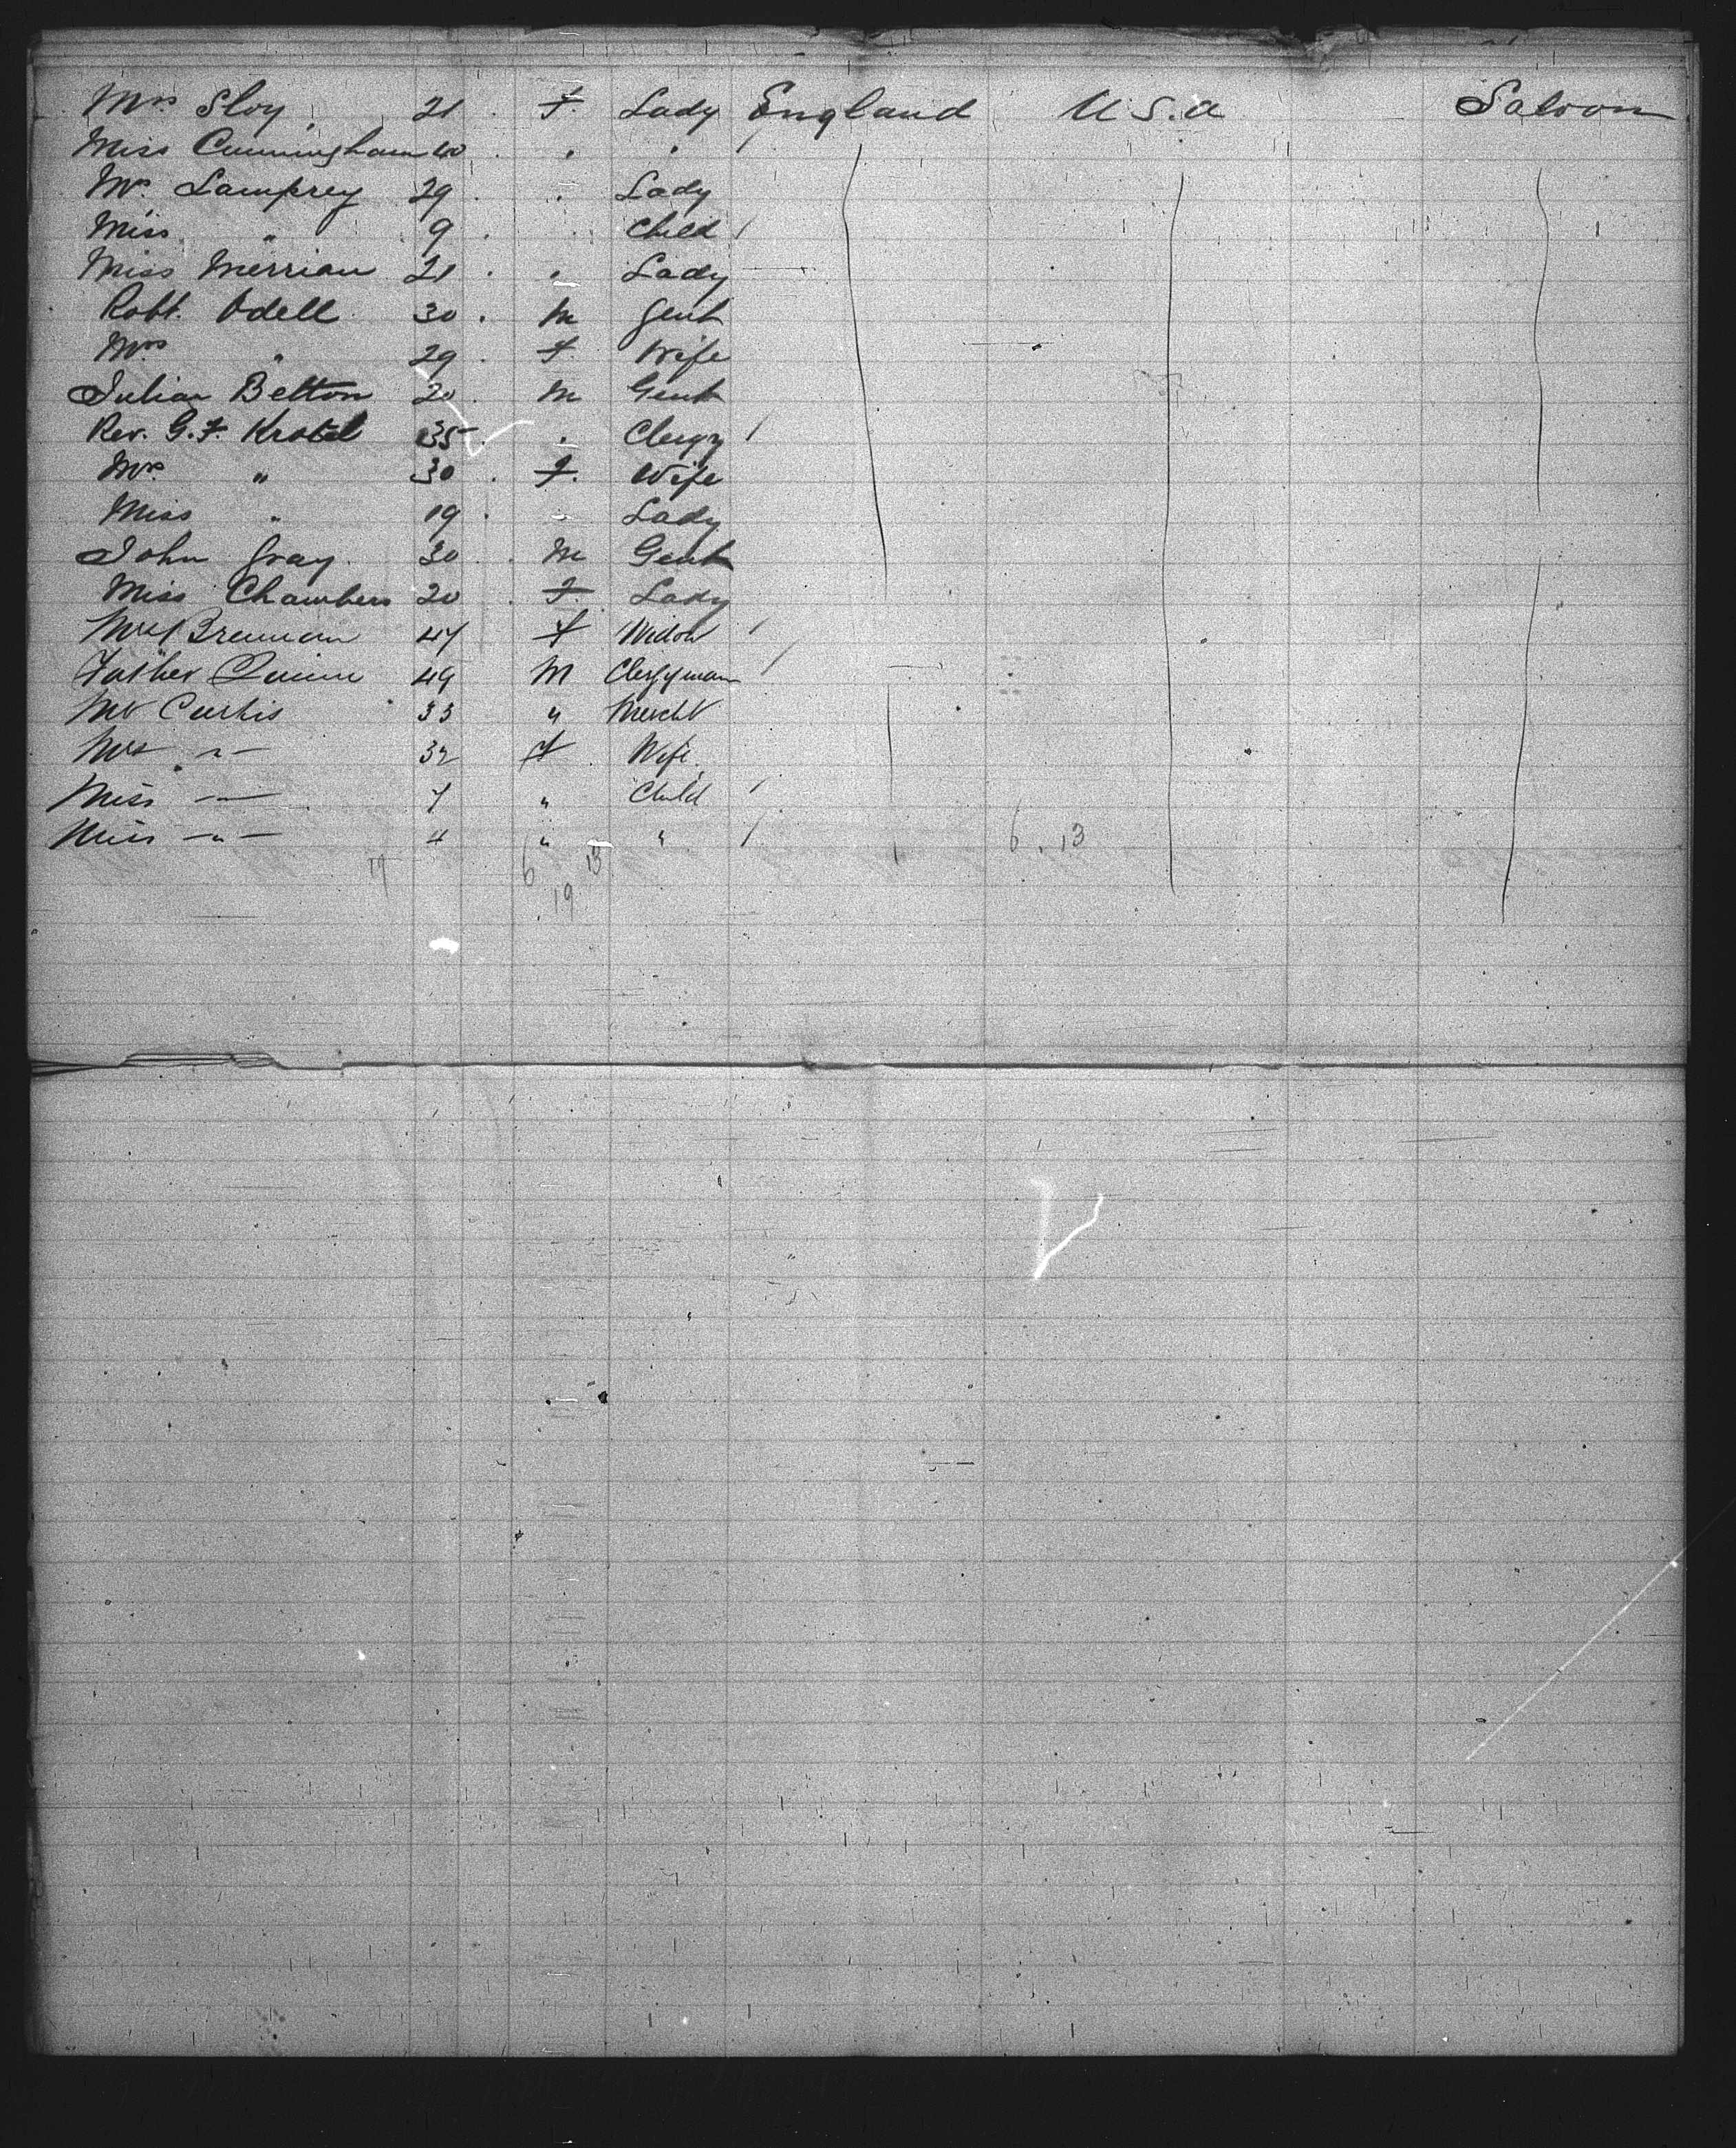 Mrs Sloy 21 . F. Lady England U S. a Saloon
Miss Cunningham 40 . " "
Mrs Lamprey 29 . " Lady
Miss " 9 . Child /
Miss Merriam 21 . " Lady
Robt. Odell 30 . M Gent
Mrs " 29 . F. Wife
Julian Belton 20 . M Gent
Rev. G. F. Krotel 35 . " Clergy /
Mrs " 30 . F. Wife
Miss " 19 . " Lady
John Gray. 30 . M Gent
Miss Chambers 20 . F. Lady
Mrs Brennan 47 F Widow /
Father Quinn 49 M Clergyman /
Mr Curtis 33 " Mercht
Mrs -"- 32 F. Wife
Miss -"- 7 " Child /
Miss -"- 4 " " / 6 . 13
19 6 13
19